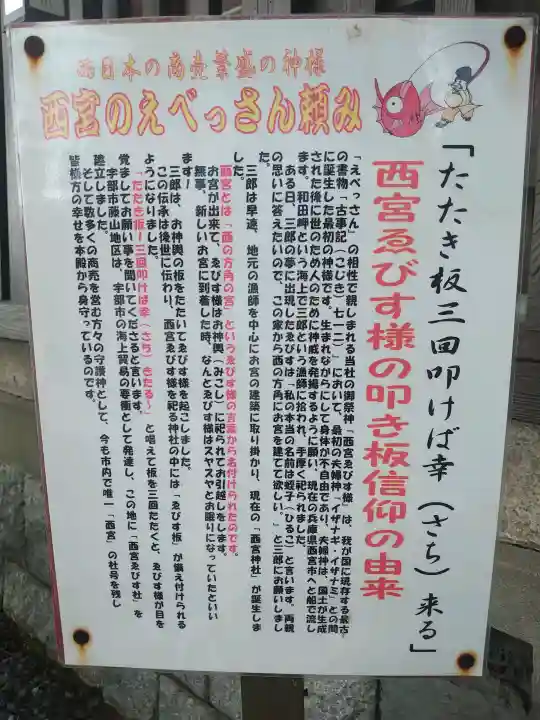 西日本の商売繁盛の神様
西宮のえべっさん頼み
「たたき板三回叩けば幸(さち)来る」
西宮ゑびす様の叩き板信仰の由来
「えべっさん」の相性で親しまれる当社の御祭神「西宮ゑびす様」は、我が国に現存する最古
の書物「古事記(こじき)七一二」において、最初の夫婦神「イザナギ・イザナミ」との間
に誕生した最初の神様です。生まれながらにして身体が不自由であり、夫婦神は、国土が生成
された後に世のため人のために神威を発揚するように願い、現在の兵庫県西宮市へと船で流し
ます。和田岬という海上で三郎という漁師に拾われ、手厚く祀られました。
ある日、三郎の夢に出現したゑびすは「私の本当の名前は蛭子(ひるこ)と言います。両親
の思いに答えたいので、この家から西の方角にお宮を建てて欲しい。」と三郎にお願いしまし
た。
三郎は早速、地元の漁師を中心にお宮の建築に取り掛かり、現在の「西宮神社」が誕生しま
した。
西宮とは「西の方角の宮」というゑびす様の言葉から名付けられたのです。
お宮が出来て、ゑびす様はお神輿(みこし)に祀られてお引越しをします。
無事、新しいお宮に到着した時、なんとゑびす様はスヤスヤとお眠りになっていたといい
ます!
三郎は、お神輿の板をたたいてゑびす様を起こしました。
この伝承は後世に伝わり、西宮ゑびす様を祀る神社の中には「ゑびす板」が備え付けられる
ようになりました。
「たたき板!三回叩けば幸(さち)きたる~」と唱えて板を三回たたくと、ゑびす様が目を
覚ましてお願い事を聞いてくださると言います。
宇部市藤山地区は、宇部市の海上貿易の要衝として発達し、この地に「西宮ゑびす社」を
建立しました。
そして数多くの商売を営む方々の守護神として、今も市内で唯一「西宮」の社号を残し
皆様方の幸せを本殿から身守っているのです。